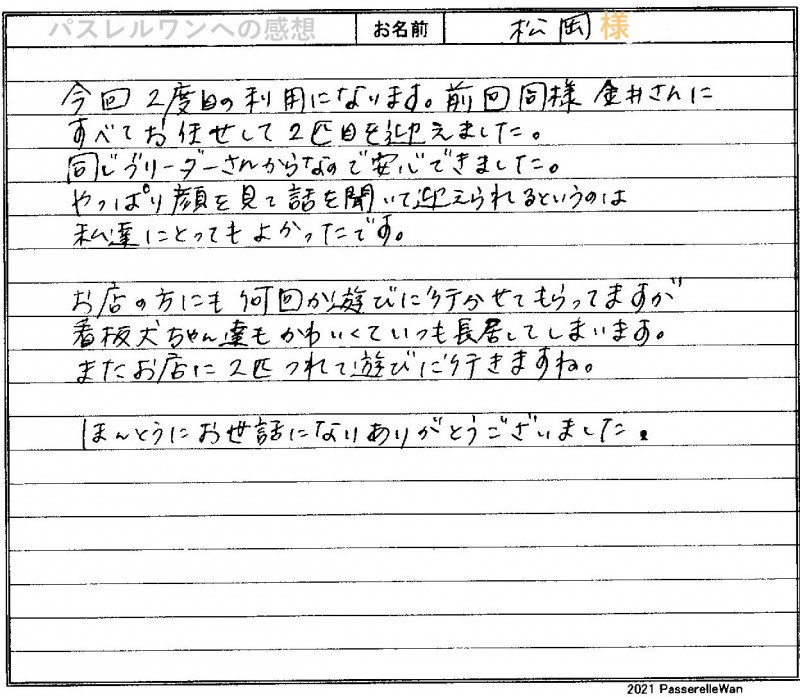 パスレルワンへの感想 お名前 松岡 様
今回2度目の利用になります。前回同様 金井さんに
すべてお任せして2匹目を迎えました。
同じブリーダーさんからなので安心できました。
やっぱり顔を見て話を聞いて迎えられるというのは
私達にとってもよかったです。
お店の方にも何回か遊びに行かせてもらってますが
看板犬ちゃん達もかわいくていつも長居してしまいます。
またお店に2匹つれて遊びに行きますね。
ほんとうにお世話になりありがとうございました.
2021 PasserelleWan